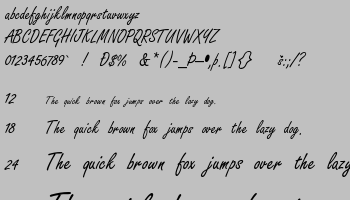 abcdefghijklmnopqrstuvwxyz
ABCDEFGHIJKLMNOPQRSTUVWXYZ
0123456789` ! Ð8% &*()-_Þ—•,þ.[]{} š:;/?
12 The quick brown fox jumps over the lazy dog.
18 The quick brown fox jumps over the lazy dog.
24 The quick brown fox jumps over the lazy